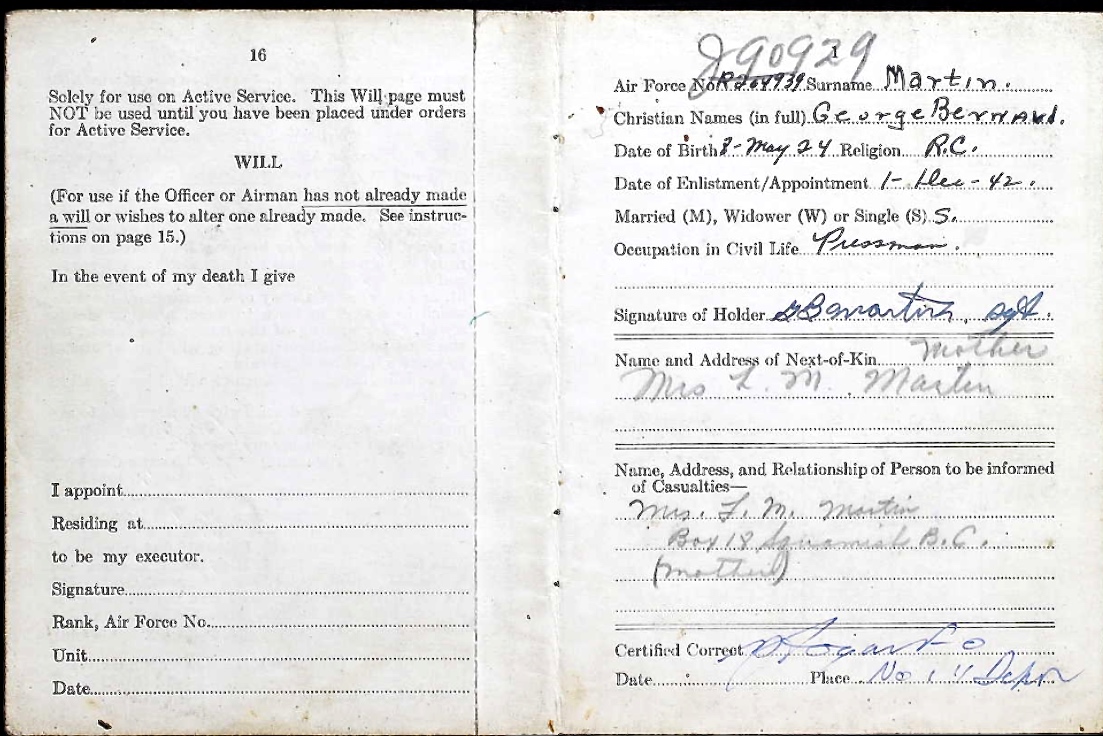 16
Solely for use on Active Service. This Will page must
NOT be used until you have been placed under orders
for Active Service.
WILL
(For use if the Officer or Airman has not already made
a will or wishes to alter one already made. See instruc-
tions on page 15.)
In the event of my death I give
I appoint
Residing at
to be my executor.
Signature
Rank, Air Force No.
Unit
Date
J90929
1
Air Force No. R204939 Surname Martin.
Christian Names (in full) George Bernard.
Date of Birth 8-May 24 Religion R.C.
Date of Enlistment/Appointment 1-Dec-42.
Married (M), Widower (W) or Single (S) S.
Occupation in Civil Life Pressman.
Signature of Holder GBMartin, Sgt.
Name and Address of Next-of-Kin Mother
Mrs F. M. Martin
Name, Address, and Relationship of Person to be informed
of Casualties—
Mrs. F. M. Martin
Box 18 Squamish B.C.
(Mother)
Certified Correct F O
Date Place No 1 Y Depot